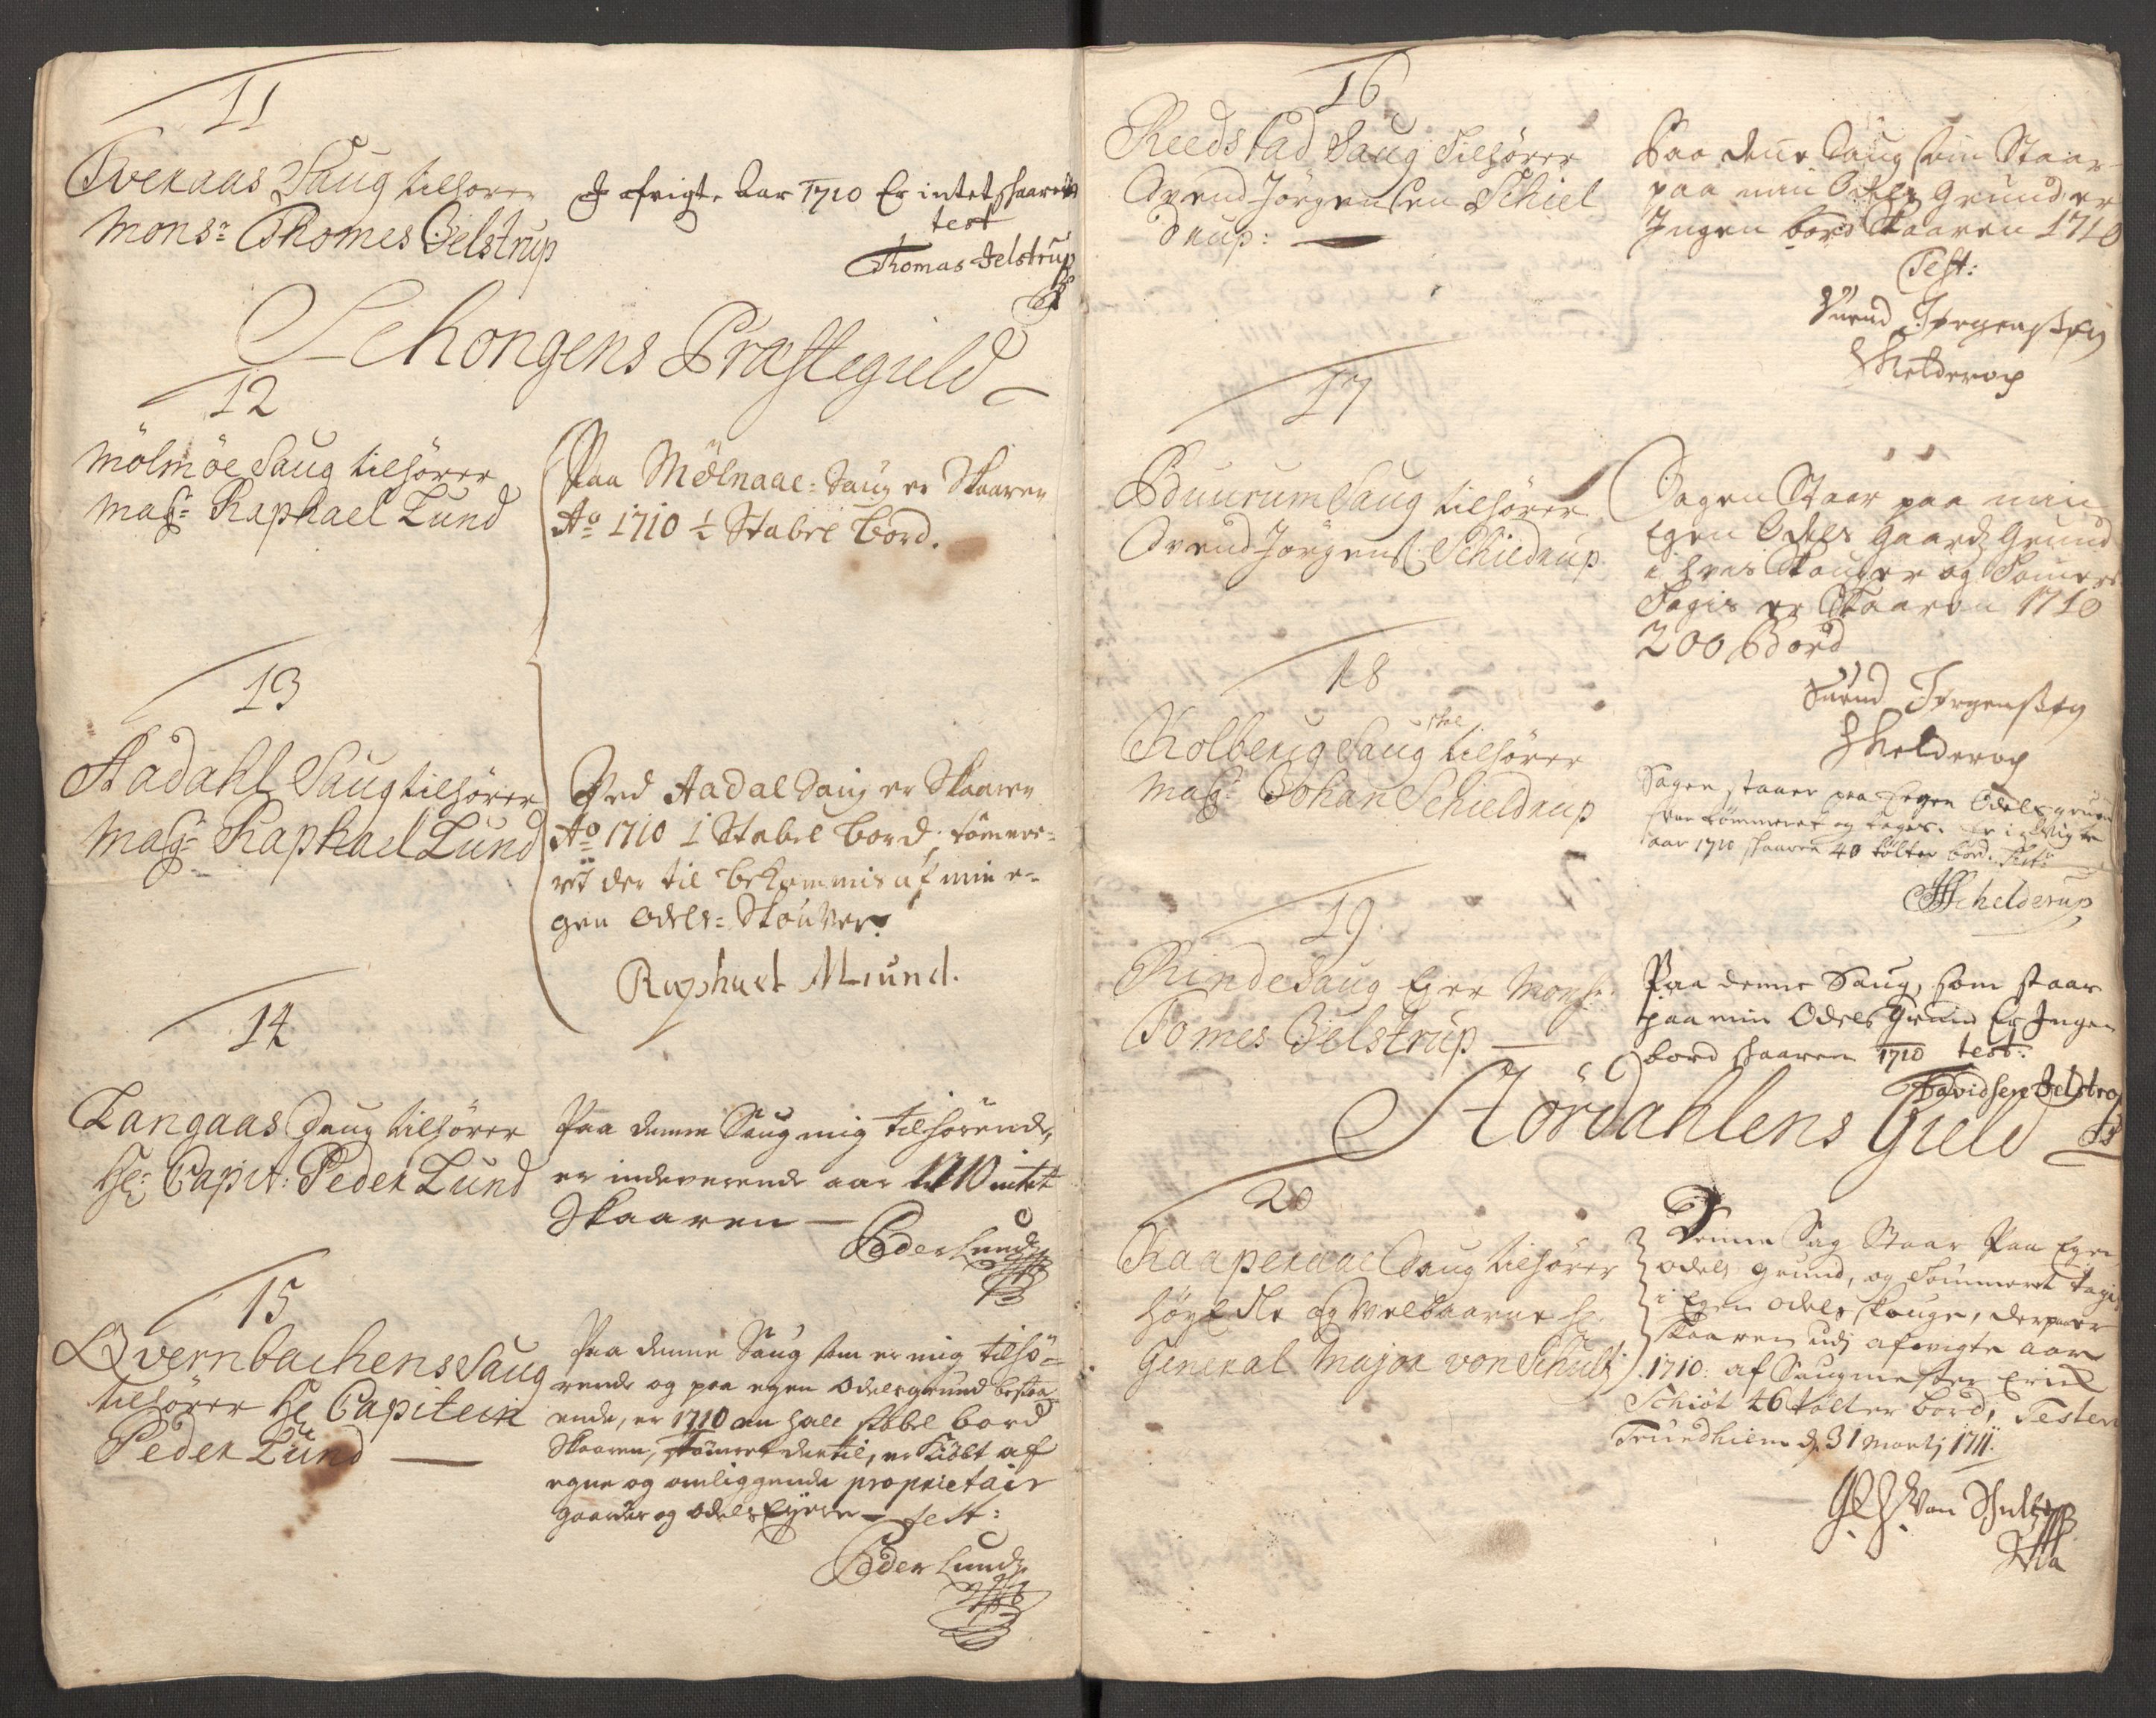 11
Tveraas Saug tilhører
Mons:r Thomes Gelstrup
I afvigte Aar 1710 Er intet skaaren
test
Thomas Jelstrup
Schongens Præstegield
12
Mölmöe Saug tilhører
Mag: Raphael Lund
Paa Mölnaae: Saug er Skaaren
Ao 1710 ½ Stabel bord.
13
Aadahl Saug tilhører
Mag: Raphael Lund
Ved Aadal Saug er Skaaren
Ao 1710 1 Stabel bord, tömmer=
ret der til bekommis af min e=
gen Odels= Skouver.
Raphael MLund.
14
Langaas Saug tilhører
Hr: Capit: Peder Lund
Paa denne Saug mig tilhörende,
er indeverende aar 1710 intet
Skaaren —
Peder Lund
15
Qvernbachens Saug
tilhører Hr Capitein
Peder Lund —
Paa denne Saug som er mig tilhö=
rende og paa egen Odelsgrund bestaa
ende, er 1710 en halv stabel bord
Skaaren, tömret dertil, er Kiöbt af
egne og omliggende proprietair
gaarder og odels Eyere — test:
Peder Lund
16
Reedstad Saug tilhører
Svend Jörgensen Schiel
drup: —
Paa denne Saug som Staar
paa min Odels Grund er
Ingen bord Skaaren 1710
Test:
Suend Jørgensen
Skelderop
17
Buurum Saug tilhører
Svend Jörgens: Schieldrup
Sagen Staar paa min
Egen Odels Gaards Grund
i hvis Skouger og Tömer
Tagis er Skaaren 1710
200 Bord
Suend Jørgensen
Skelderop
18
Kolberg Saug tilhører
Mag: Johan Schieldrup
Sagen staaer paa Egen Odels grund
hvor tömmeret og tages. Er i afvigte
aar 1710 skaaren 40 tölter bord. Test:
Schelderup
19.
Rinde Saug Ejer Mons:r
Tomes Gelstrup —
Paa denne Saug, som staar
paa min Odels Grund Er Ingen
bord skaaren 1710 test:
TDavidsen Jelstrop
Stördahlens Gield
20
Raaperaae Saug tilhører
HöyEdle og Velbaarne Hr
General Major von Schults
Denne Sag Staar Paa Egen
odels grund, og Tömmeret tagis
i Egen odels skouge, derpaa er
skaaren udj afvigte aar
1710: af Saugmester Erich
Schiöt 46 tölter bord, Tester
Trundhiem d. 31 Martj 1711.
von Schultz